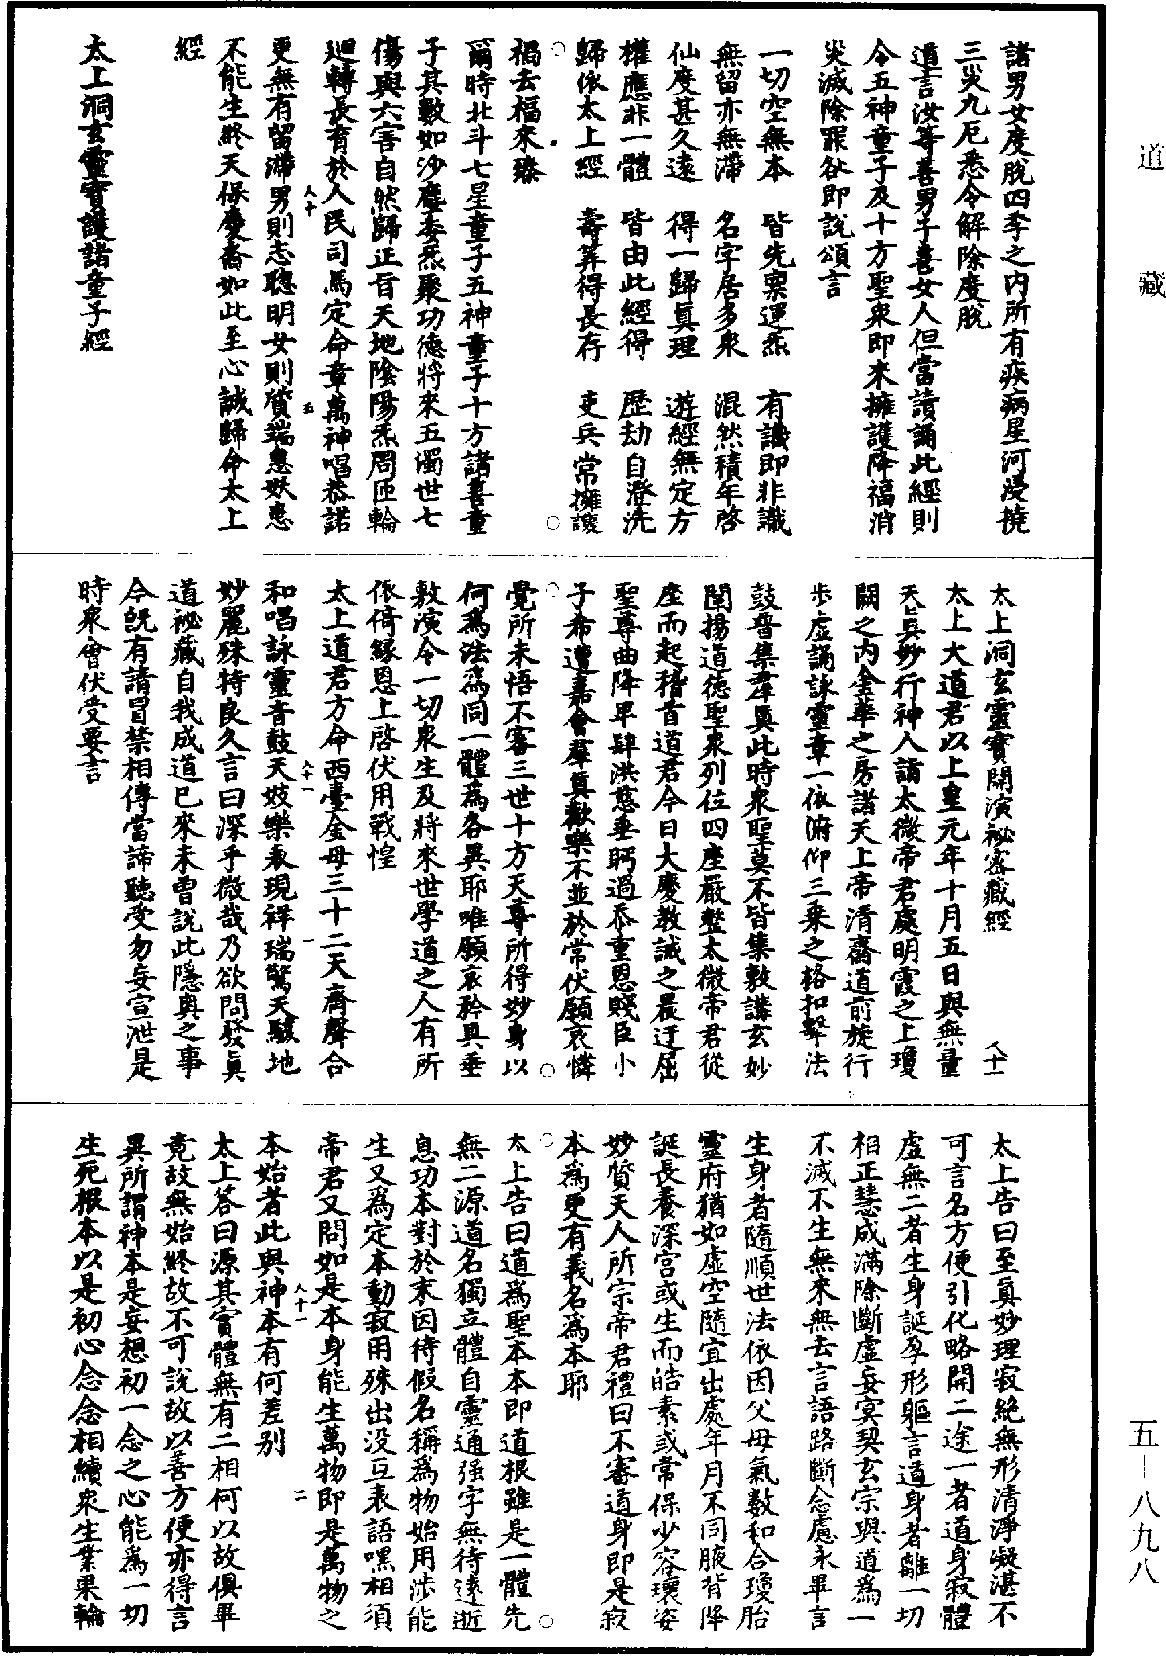 道藏
諸男女度脫四季之內所有疾病星河浸撓
三災九厄悉令解除度脫
道言汝等善男子善女人但當請誦此經則
令五神童子及十方聖衆即來擁護降福消
災滅除罪咎即說頌言
一切空無本　皆先稟運炁　有識即非識
無留亦無滯　名字居多衆　混然積年啓
仙度甚久遠　得一歸眞理　遊經無定方
權應非一體　皆由此經得　歷劫自澄洗
歸依太上經　壽筭得長存　吏兵常擁護
禍去福來臻
爾時北斗七星童子五神童子十方諸善童
子其數如沙塵委炁聚功德將來五濁世七
傷與六害自然歸正旨天地陰陽炁周匝輪
迴轉長育於人民司馬定命章萬神唱恭諾
更無有留滯男則志聰明女則質端惠妖患
不能生終天保慶者如此至心誠歸命太上
經
太上洞玄靈寶護諸童子經
八十
五
太上洞玄靈寶開演祕密藏經　八十一
太上大道君以上皇元年十月五日與無量
天眞妙行神人請太微帝君處明霞之上瓊
闕之內金華之房諸天上帝清齋道前旋行
步虛誦詠靈章一依俯仰三乘之格扣擊法
鼓普集羣眞此時衆聖莫不皆集敷講玄妙
闡揚道德聖衆列位四座嚴整太微帝君從
座而起稽首道君今日大慶教誡之晨迂屈
聖尊曲降卑肆洪慈垂眄過忝重恩賤臣小
子希遭嘉會羣眞歡樂不並於常伏願哀憐
覺所未悟不審三世十方天尊所得妙身以
何爲法爲同一體爲各異耶唯願哀矜具垂
敷演令一切衆生及將來世學道之人有所
依倚緣恩上啓伏用戰惶
太上道君方命西臺金母三十二天齊聲合
和唱詠靈音鼓天妓樂表現祥瑞驚天駭地
妙麗殊特良久言曰深乎微哉乃欲問發眞
道祕藏自我成道已來未曾說此隱奧之事
今旣有請冒禁相傳當諦聽受勿妄宣泄是
時衆會伏受要言
八十一
一
太上告曰至眞妙理寂絕無形清淨凝湛不
可言名方便引化略開二途一者道身寂體
虛無二者生身誕孕形軀言道身者離一切
相正慧成滿除斷虛妄冥契玄宗與道爲一
不滅不生無來無去言語路斷念慮永畢言
生身者隨順世法依因父母氣數和合瓊胎
靈府猶如虛空隨宜出處年月不同腋背降
誕長養深宮或生而皓素或常保少容瓌姿
妙質天人所宗帝君禮曰不審道身即是寂
本爲更有義名爲本耶
太上告曰道爲聖本本即道根雖是一體先
無二源道名獨立體自靈通強字無待遠逝
息功本對於末因待假名稱爲物始用涉能
生又爲定本動寂用殊出没互表語嘿相須
帝君又問如是本身能生萬物即是萬物之
本始者此與神本有何差別
太上答曰源其實體無有二相何以故俱畢
竟故無始終故不可說故以善方便亦得言
異所謂神本是妄想初一念之心能爲一切
生死根本以是初心念念相續衆生業果輪
八十一
二
五—八九八